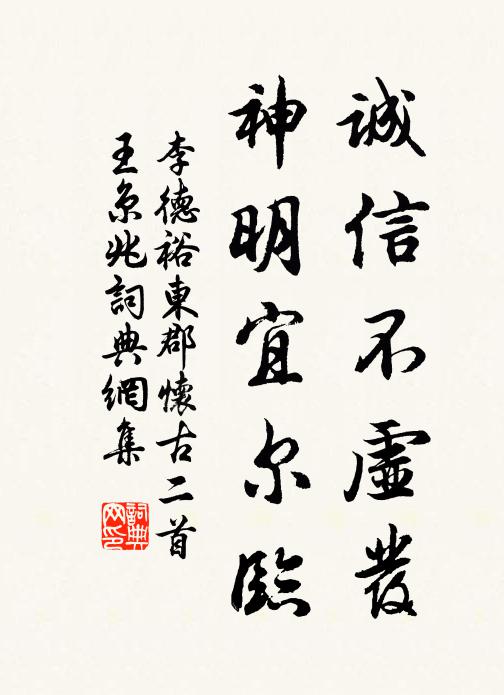 誠信不虛發
神明宜尔臨
李德裕東郡懷古二首
王京兆詞典網集
詞典
网印